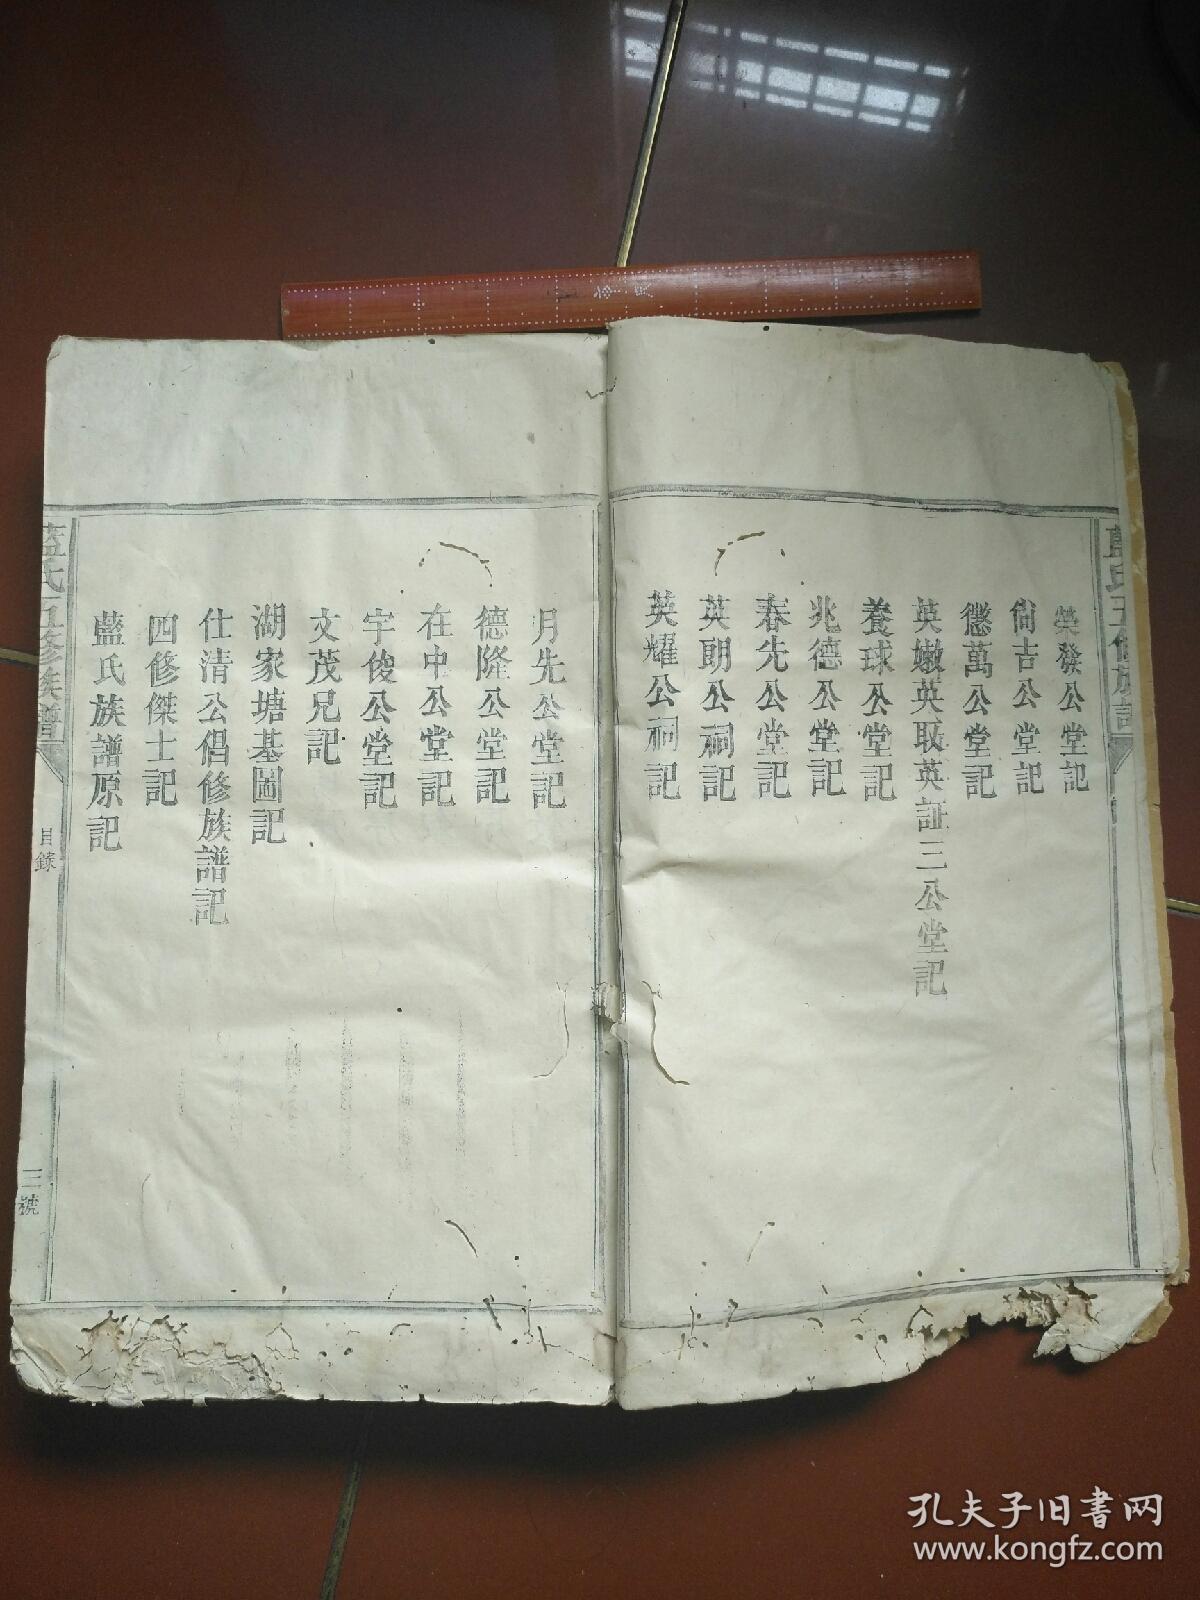 榮發公堂記
尙吉公堂記
懲萬公堂記
英嫩英取英証三公堂記
養球公堂記
兆德公堂記
春先公堂記
英朗公祠記
英耀公祠記
月先公堂記
德隆公堂記
在中公堂記
宇俊公堂記
文茂兄記
湖家塘基圖記
仕清公倡修族譜記
四修傑士記
藍氏族譜原記
藍氏五修族譜
目錄
三號
孔夫子旧书网
www.kongfz.com